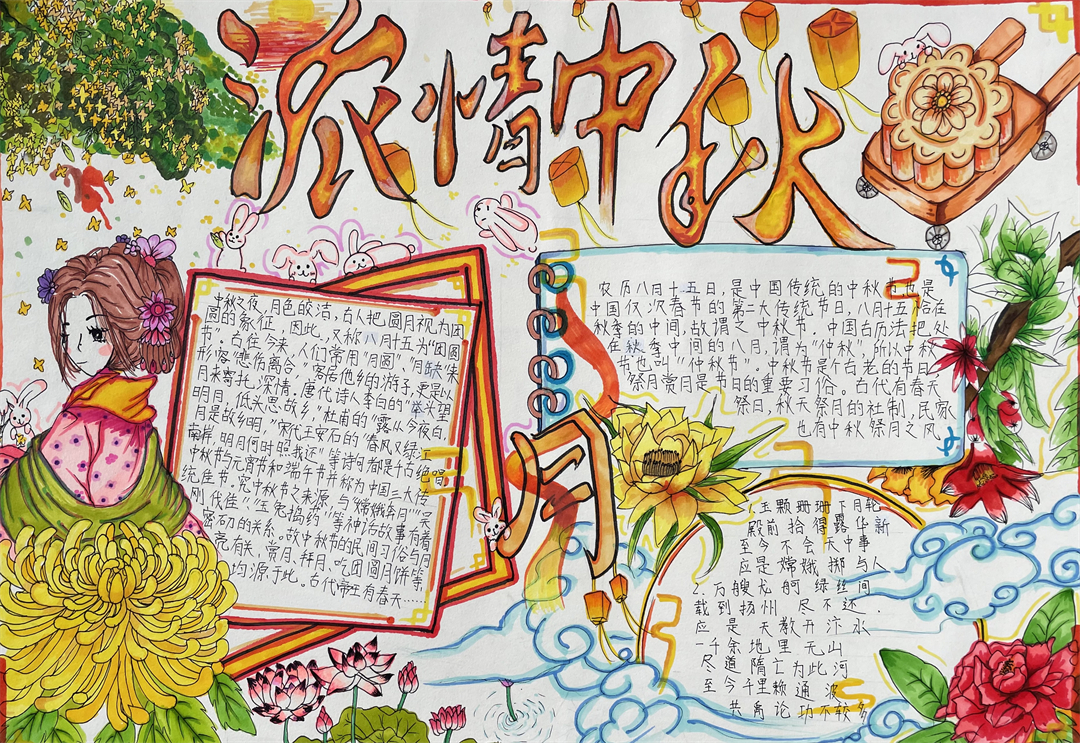 浓情中秋
中秋之夜,月色皎洁,古人把圆月视为团
圆的象征,因此,又称八月十五为“团圆
节”。古往今来,人们常用“月圆”“月缺”来
形容“悲伤离合”,客居他乡的游子,更是以
月来寄托深情。唐代诗人李白的“举头望
明月,低头思故乡”,杜甫的“露从今夜白,
月是故乡明,”宋代王安石的“春风又绿江
南岸,明月何时照我还”等诗句都是千古绝唱
中秋节与元宵节和端午节并称为中国三大传
统佳节。究中秋节之来源,与“嫦娥奔月”“吴
刚伐佳”“玉兔捣药”等神话故事有着
密切的关系。故中秋节的民间习俗与月
亮有关,赏月、拜月、吃团圆月饼等,
均源于此。古代帝王有春天……
农历八月十五日,是中国传统的中秋节也是
中国仅次春节的第二大传统节日,八月十五恰在
秋季的中间,故谓之中秋节。中国古历法把处
在秋季中间的八月,谓为“仲秋”所以中秋
节也叫“仲秋节”。中秋节是个古老的节日
祭月赏月是节日的重要习俗。古代有春天
祭日,秋天祭月的社制,民家
也有中秋祭月之风
月
1.玉颗珊珊下月轮
殿前拾得露华新
至今不会天中事
应是嫦娥掷与人
2.万艘龙舸绿丝间
载到扬州尽不还.
应是天教开汴水
一千余地里无山
尽道隋亡为此河
至今千里赖通波
共禹论功不较多